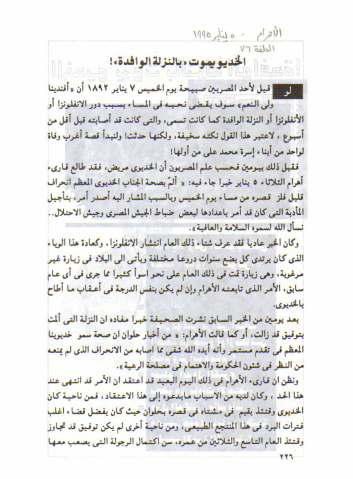 الأهرام ٥ يناير ١٩٩٥
الحلقة ٧٦
الخديو يموت «بالنزلة الوافدة»!
لو قيل لأحد المصريين صبيحة يوم الخميس ٧ يناير ١٨٩٢ أن «أفندينا
ولى النعم» سوف يقضى نحبه فى المساء بسبب دور الانفلونزا أو
الأنفلونزا أو النزلة الوافدة كما كانت تسمى، والتى كانت قد أصابته قبل أقل من
أسبوع، لاعتبر هذا القول نكته سخيفة، ولكنها حدثت! ولنبدأ قصة أغرب وفاة
لواحد من أبناء إسرة محمد على من أولها!
فقبل ذلك بيومين فحسب علم المصريون أن الخديوى مريض، فقد طالع قارىء
أهرام الثلاثاء ٥ يناير خبرا جاء فيه: «ألم بصحة الجناب الخديوى المعظم انحراف
قليل فلز قصره من مساء يوم الخميس وبالسبب المشار اليه أصدر أمره بتأجيل
المأدبة التى كان قد أمر باعدادها لبعض ضباط الجيش المصرى وجيش الاحتلال..
نسأل الله لسموه السلامة والعافية».
وكان الخبر عاديا فقد عرف شتاء ذلك العام انتشار الانفلونزا، وكعادة هذا الوباء
الذى كان يرتدى كل بضع سنوات دروعا مختلفة ويأتى الى البلاد فى زيارة غير
مرغوبة، وهى زيارة تمت فى ذلك العام على نحو أسوأ كثيرا مما جرى فى أى عام
سابق، الأمر الذى تابعته الأهرام وإن لم يكن بنفس الدرجة فى أعقاب ما أطاح
بالخديوى.
بعد يومين من الخبر السابق نشرت الصحيفة خبرا مفاده ان النزلة التى ألمت
بتوفيق قد زالت، أو كما قالت الأهرام: «من أخبار حلوان ان صحة سمو خديوينا
المعظم فى تقدم مستمر وأنه أيده الله شفى مما أصابه من الانحراف الذى لم يمنعه
من النظر فى شئون الحكومة والاهتمام فى مصلحة الرعية».
ونظن ان قارىء الأهرام فى ذلك اليوم البعيد قد اعتقد ان الأمر قد انتهى عند
هذا الحد، وكان لديه من الأسباب مايدعوه إلى هذا الاعتقاد، فمن ناحية كان
الخديوى وقتئذ يقيم فى مشتاه فى قصره بحلوان حيث كان يفضل قضاء اغلب
فترات البرد فى هذا المنتجع الطبيعى، ومن ناحية أخرى لم يكن توفيق قد تجاوز
وقتئذ العام التاسع والثلاثين من عمره، سن اكتمال الرجولة التى يصعب معها
٢٢٦